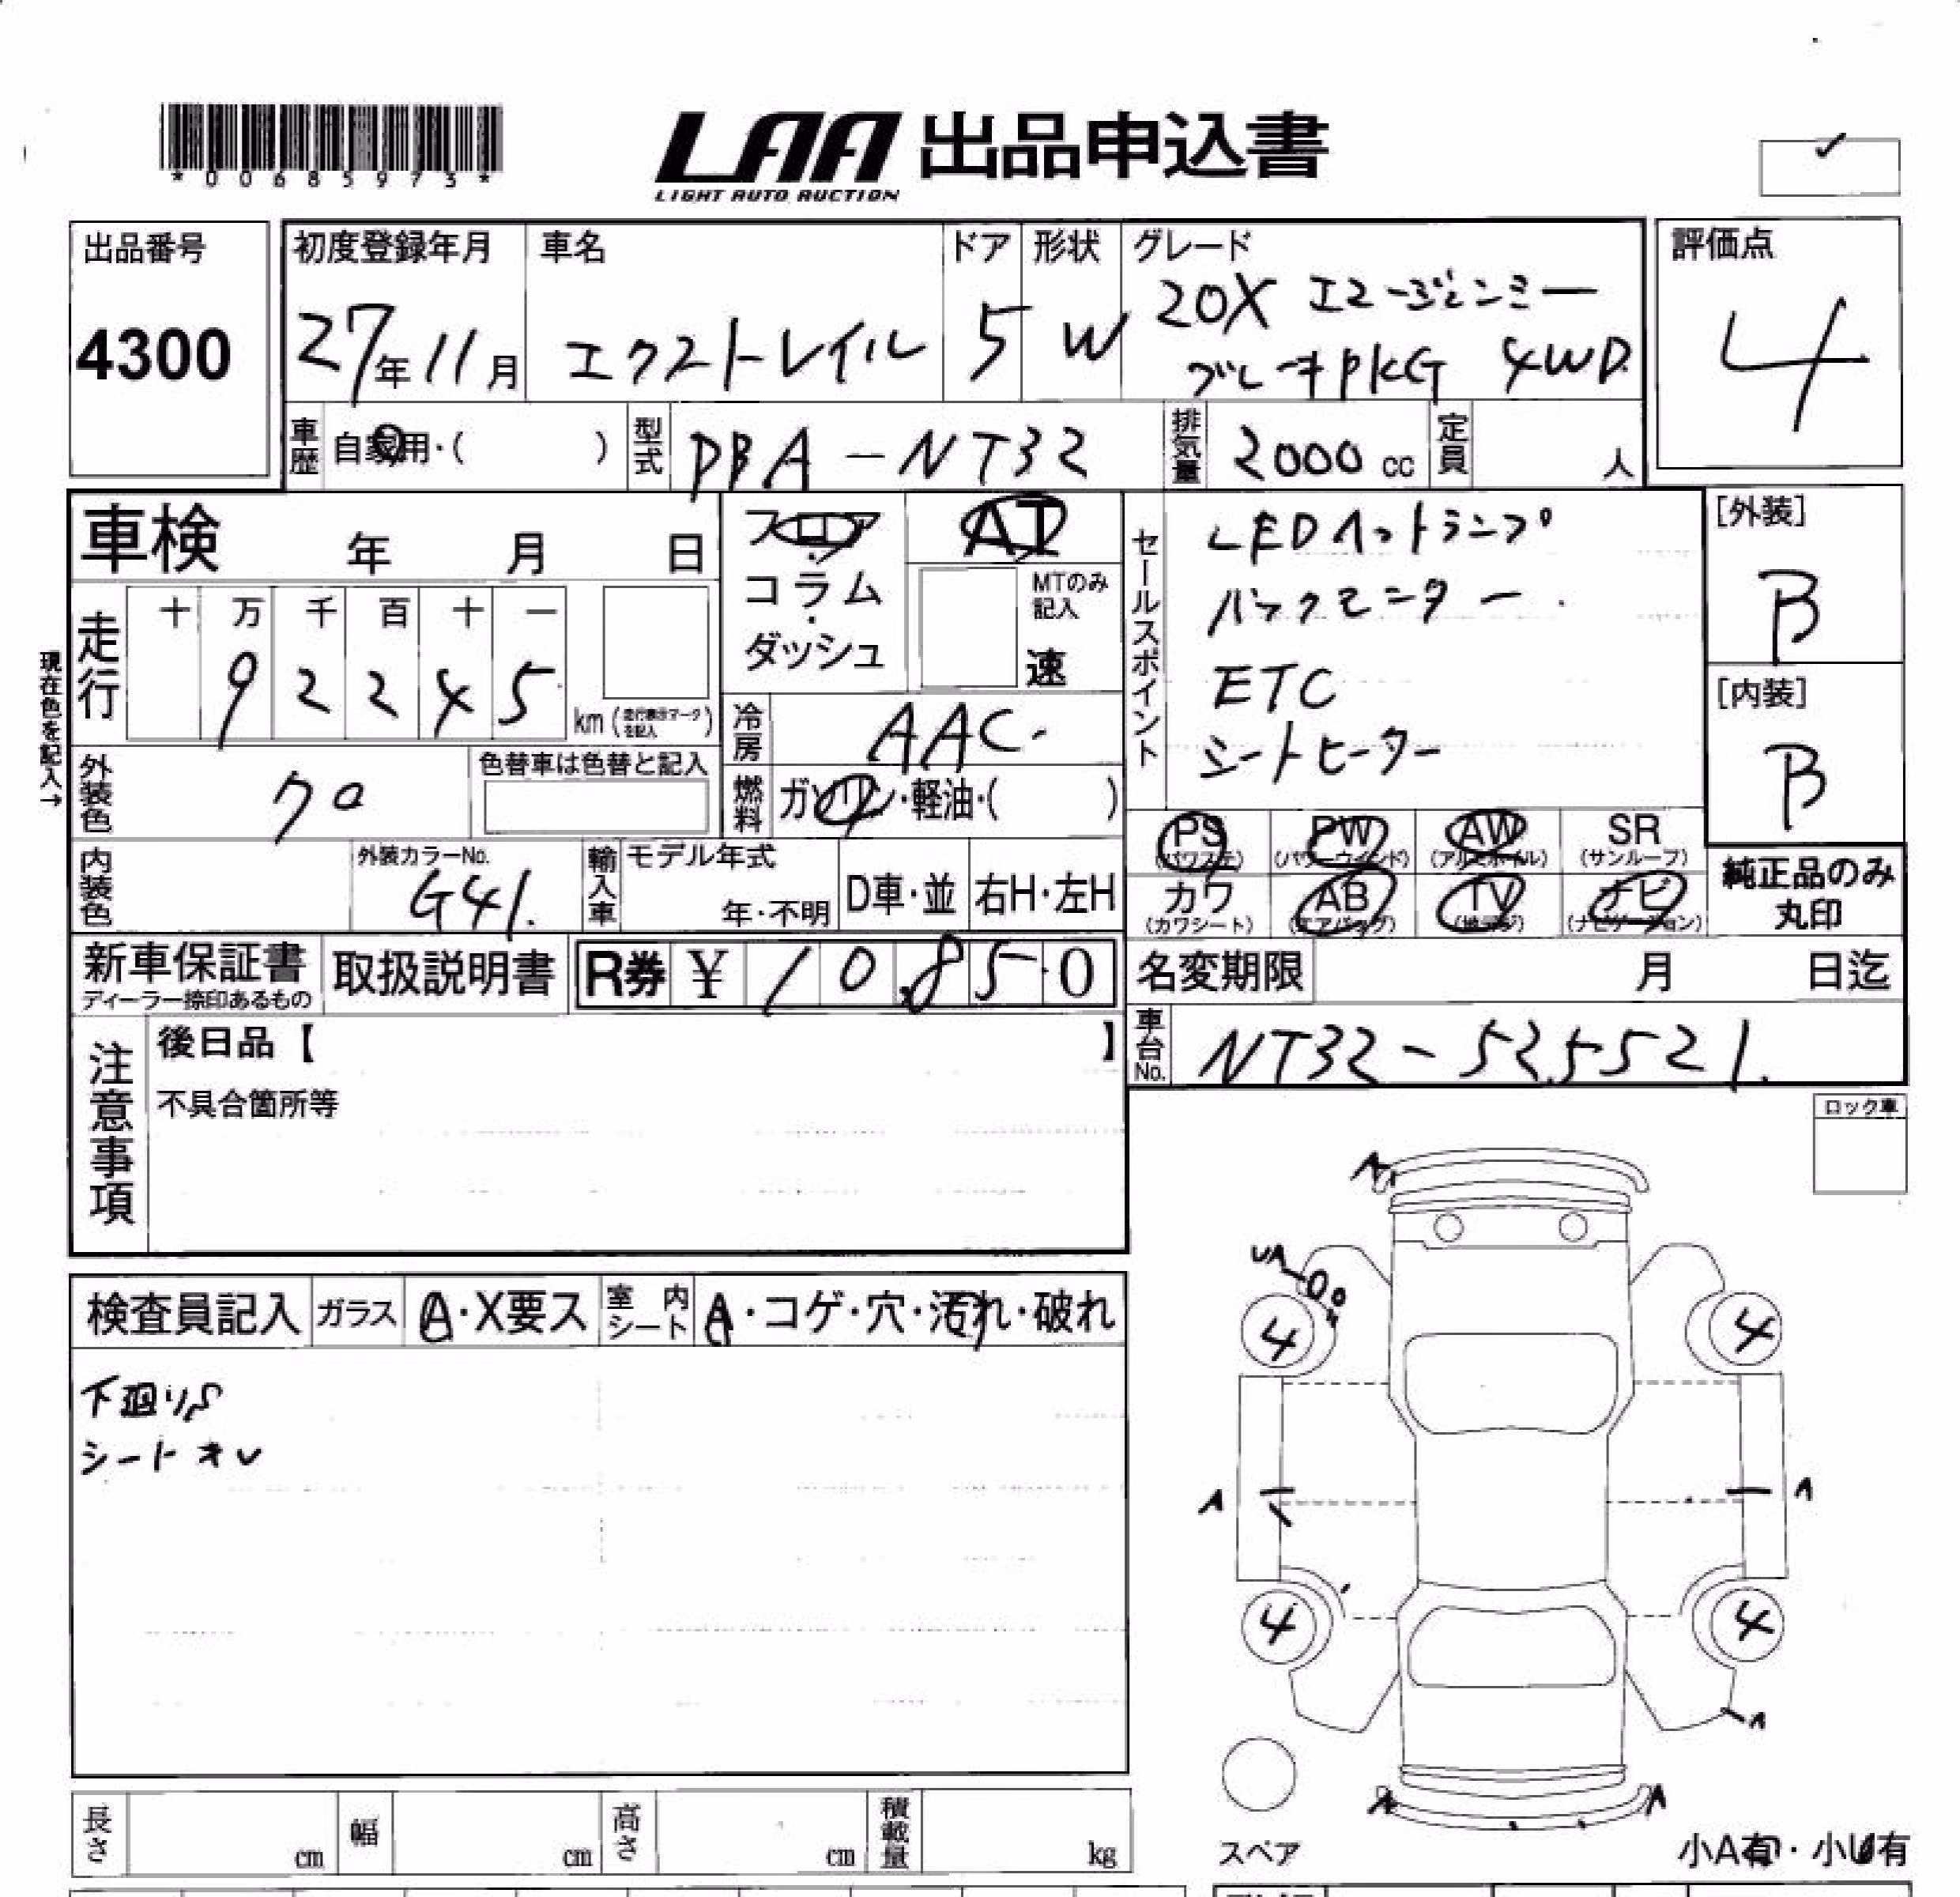 *00685973*
LAA 出品申込書
LIGHT AUTO AUCTION
出品番号
4300
初度登録年月
27年11月
車名
エクストレイル
ドア
5
形状
W
グレード
20X エマージェンシー
ブレーキPKG 4WD
評価点
4
車歴 自家用・( )
型式 DBA-NT32
排気量 2000 cc
定員 人
車検 年 月 日
走行
十 万 千 百 十 一
9 2 2 4 5
km (走行表示マークを記入)
現在色を記入→
フロア・コラム・ダッシュ
AT
MTのみ記入
速
冷房 AAC
燃料 ガソリン・軽油・( )
セールスポイント
LEDヘッドランプ
バックモニター
ETC
シートヒーター
[外装]
B
[内装]
B
外装色 クロ
色替車は色替と記入
内装色
外装カラーNo.
G41
輸入車
モデル年式
年・不明
D車・並
右H・左H
PS (パワステ)
PW (パワーウィンド)
AW (アルミホイル)
SR (サンルーフ)
カワ (カワシート)
AB (エアバッグ)
TV (地デジ)
ナビ (ナビゲーション)
純正品のみ
丸印
新車保証書
ディーラー捺印あるもの
取扱説明書
R券 ¥ 10,850
名変期限 月 日迄
車台No. NT32-525521
注意事項
後日品【 】
不具合箇所等
ロック車
検査員記入
ガラス A・X要ス
室内シート A・コゲ・穴・汚れ・破れ
下廻りS
シートキレ
A
UA
4
4
A
A
4
4
A
A
A
スペア
小A有・小U有
長さ cm
幅 cm
高さ cm
積載量 kg